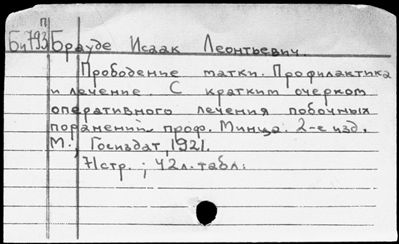 П
Би793 Брауде Исаак Леонтьевич.
Прободение матки. Профилактика
и лечение. С кратким очерком
оперативного лечения побочных
поранений проф. Минца. 2-е изд.
М., Госиздат, 1921.
71стр.; 42л.табл.